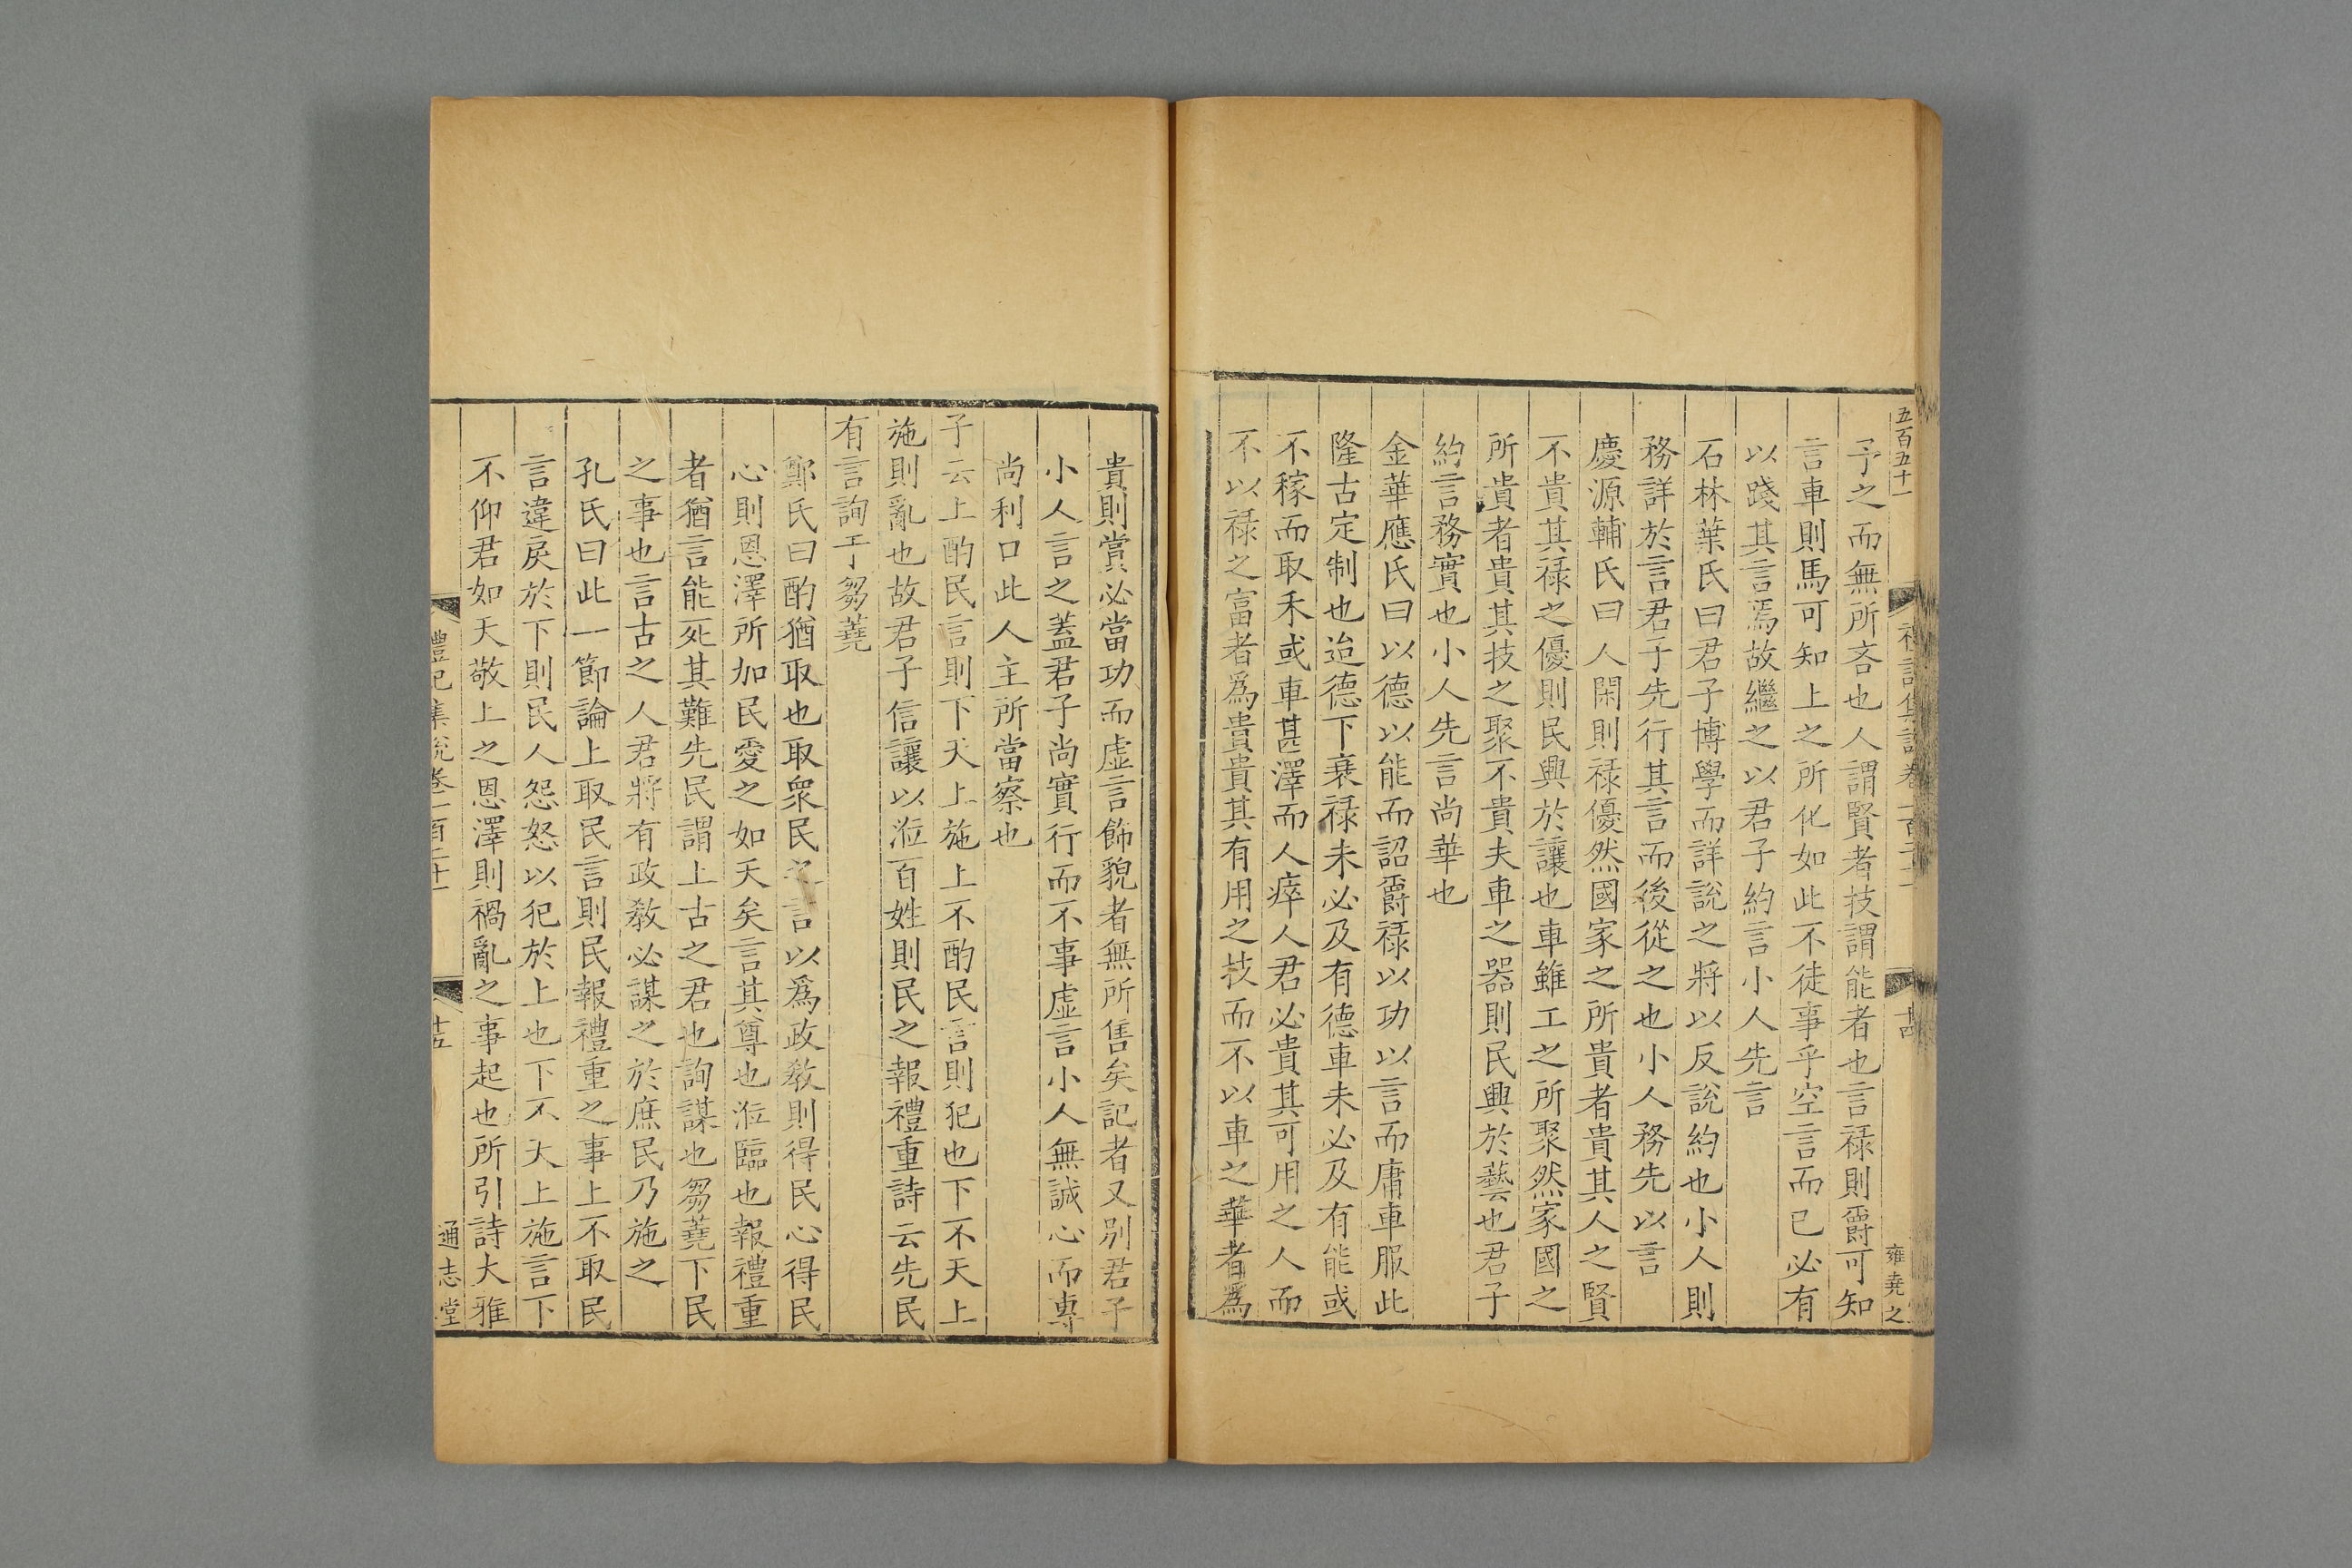 五百五十一
予之而無所吝也人謂賢者技謂能者也言祿則爵可知
言車則馬可知上之所化如此不徒事乎空言而已必有
以踐其言焉故繼之以君子約言小人先言
石林葉氏曰君子博學而詳說之將以反說約也小人則
務詳於言君子先行其言而後從之也小人務先以言
慶源輔氏曰人閑則祿優然國家之所貴者貴其人之賢
不貴其祿之優則民興於讓也車雖工之所聚然家國之
所貴者貴其技之聚不貴夫車之器則民興於藝也君子
約言務實也小人先言尚華也
金華應氏曰以德以能而詔爵祿以功以言而庸車服此
隆古定制也迨德下衰祿未必及有德車未必及有能或
不稼而取禾或車甚澤而人瘁人君必貴其可用之人而
不以祿之富者爲貴貴其有用之技而不以車之華者爲
雍堯之
貴則賞必當功而虛言飾貌者無所售矣記者又別君子
小人言之蓋君子尚實行而不事虛言小人無誠心而專
尚利口此人主所當察也
子云上酌民言則下天上施上不酌民言則犯也下不天上
施則亂也故君子信讓以涖百姓則民之報禮重詩云先民
有言詢于芻蕘
鄭氏曰酌猶取也取衆民之言以爲政敎則得民心得民
心則恩澤所加民愛之如天矣言其尊也涖臨也報禮重
者猶言能死其難先民謂上古之君也詢謀也芻蕘下民
之事也言古之人君將有政敎必謀之於庶民乃施之
孔氏曰此一節論上取民言則民報禮重之事上不取民
言違戾於下則民人怨怒以犯於上也下不天上施言下
不仰君如天敬上之恩澤則禍亂之事起也所引詩大雅
禮記集說卷一百二十一
十五
通志堂